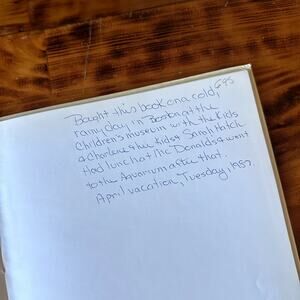 Bought this book on a cold, 695
rainy day, in Boston at the
Children's museum with the Kids
& Charlene & her Kids & Sarah Hatch.
Had lunch at McDonalds & went
to the Aquarium after that.
April vacation, Tuesday, 1987.